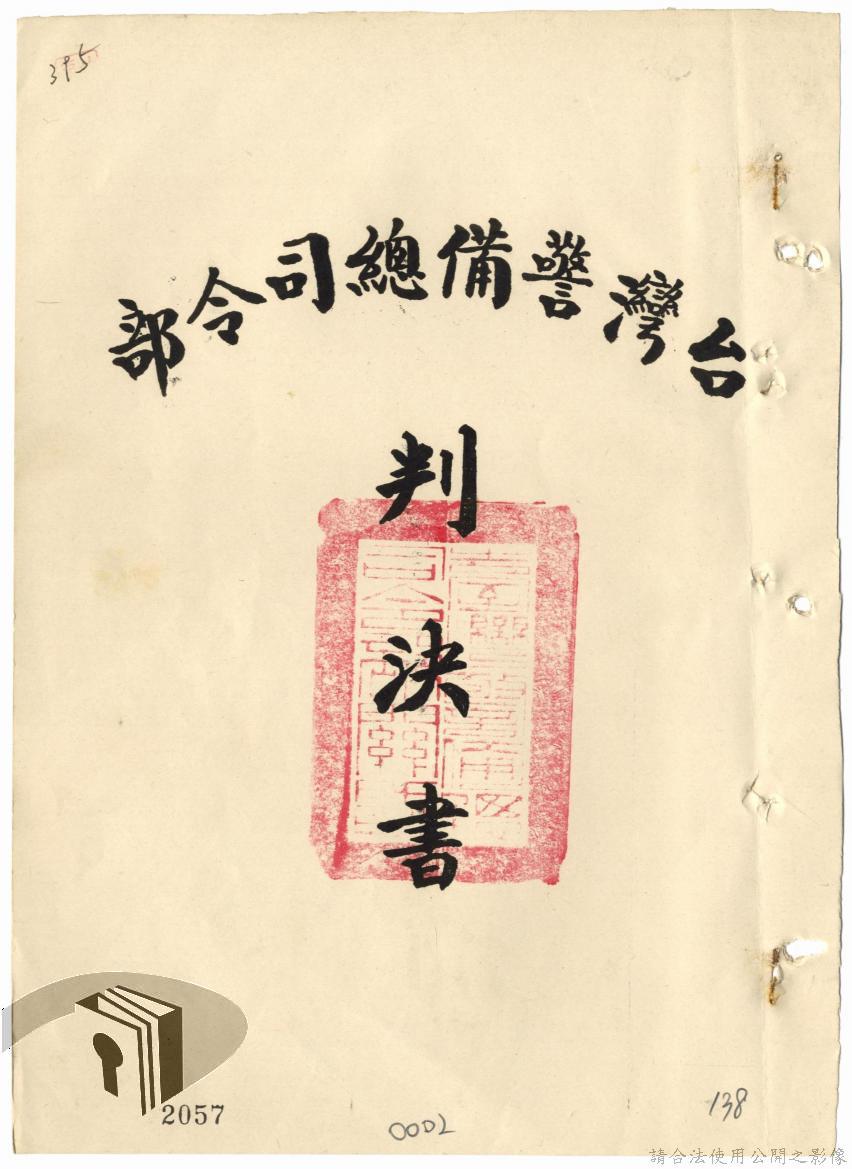 395
台灣警備總司令部
判決書
2057
0002
138
請合法使用公開之影像